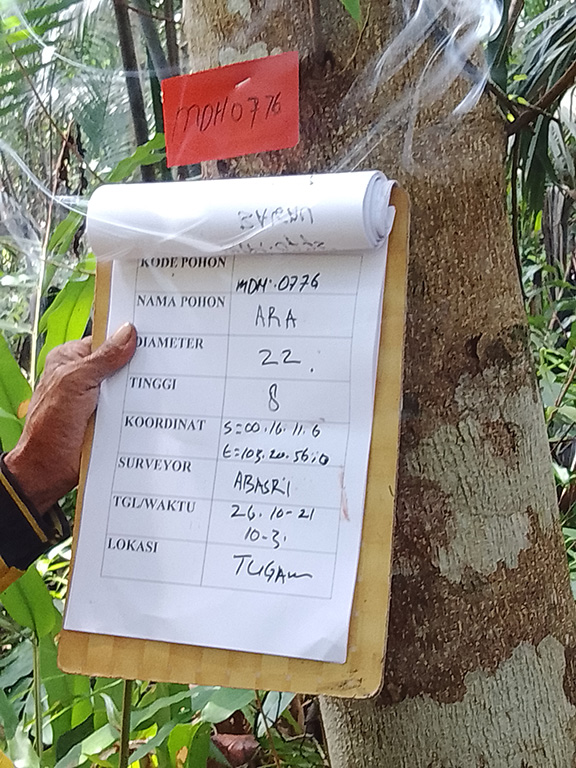 MDH0776
KODE POHON MDH.0776
NAMA POHON ARA
DIAMETER 22.
TINGGI 8
KOORDINAT S=00.16.11.6
E=103.20.56.0
SURVEYOR ABASRI
TGL/WAKTU 26.10-21
10-31
LOKASI TUGAU